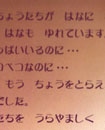 ちょうたちが はなに
はなも ゆれています。
っぱいいるのに…
コペコなのに…
もう ちょうをとらえ
でした。
たちを うらやましく